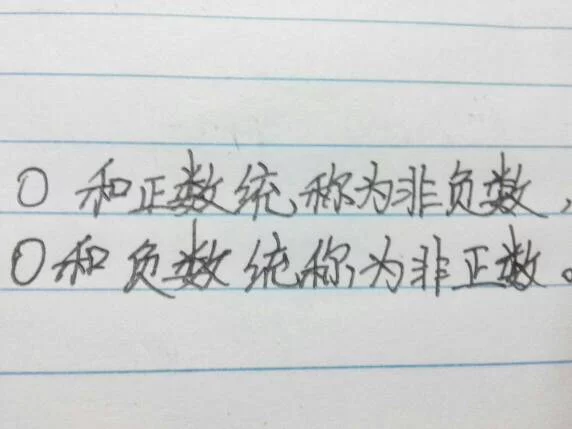 0和正数统称为非负数，
0和负数统称为非正数。